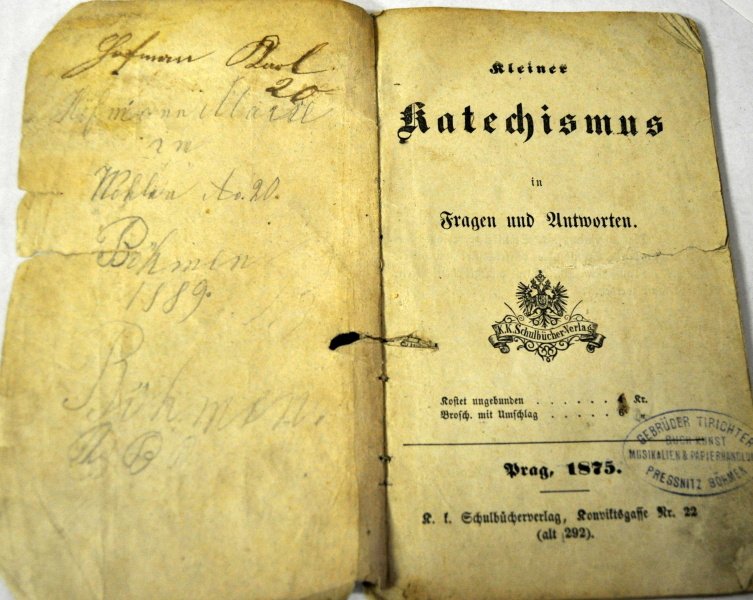 Hofman Karl
20
Hofmann Marie
in
Wohlau No. 20.
Böhmen
1889.
Böhmen.
B
Kleiner
Katechismus
in
Fragen und Antworten.
K.K. Schulbücher-Verlag
Kostet ungebunden . . . . . . 4 Kr.
Brosch. mit Umschlag . . . . . 6 „
Prag, 1875.
K. k. Schulbücherverlag, Konviktsgasse Nr. 22
(alt 292).
GEBRÜDER TIRICHTER
BUCH KUNST
MUSIKALIEN & PAPIERHANDLUN
PRESSNITZ BÖHMEN